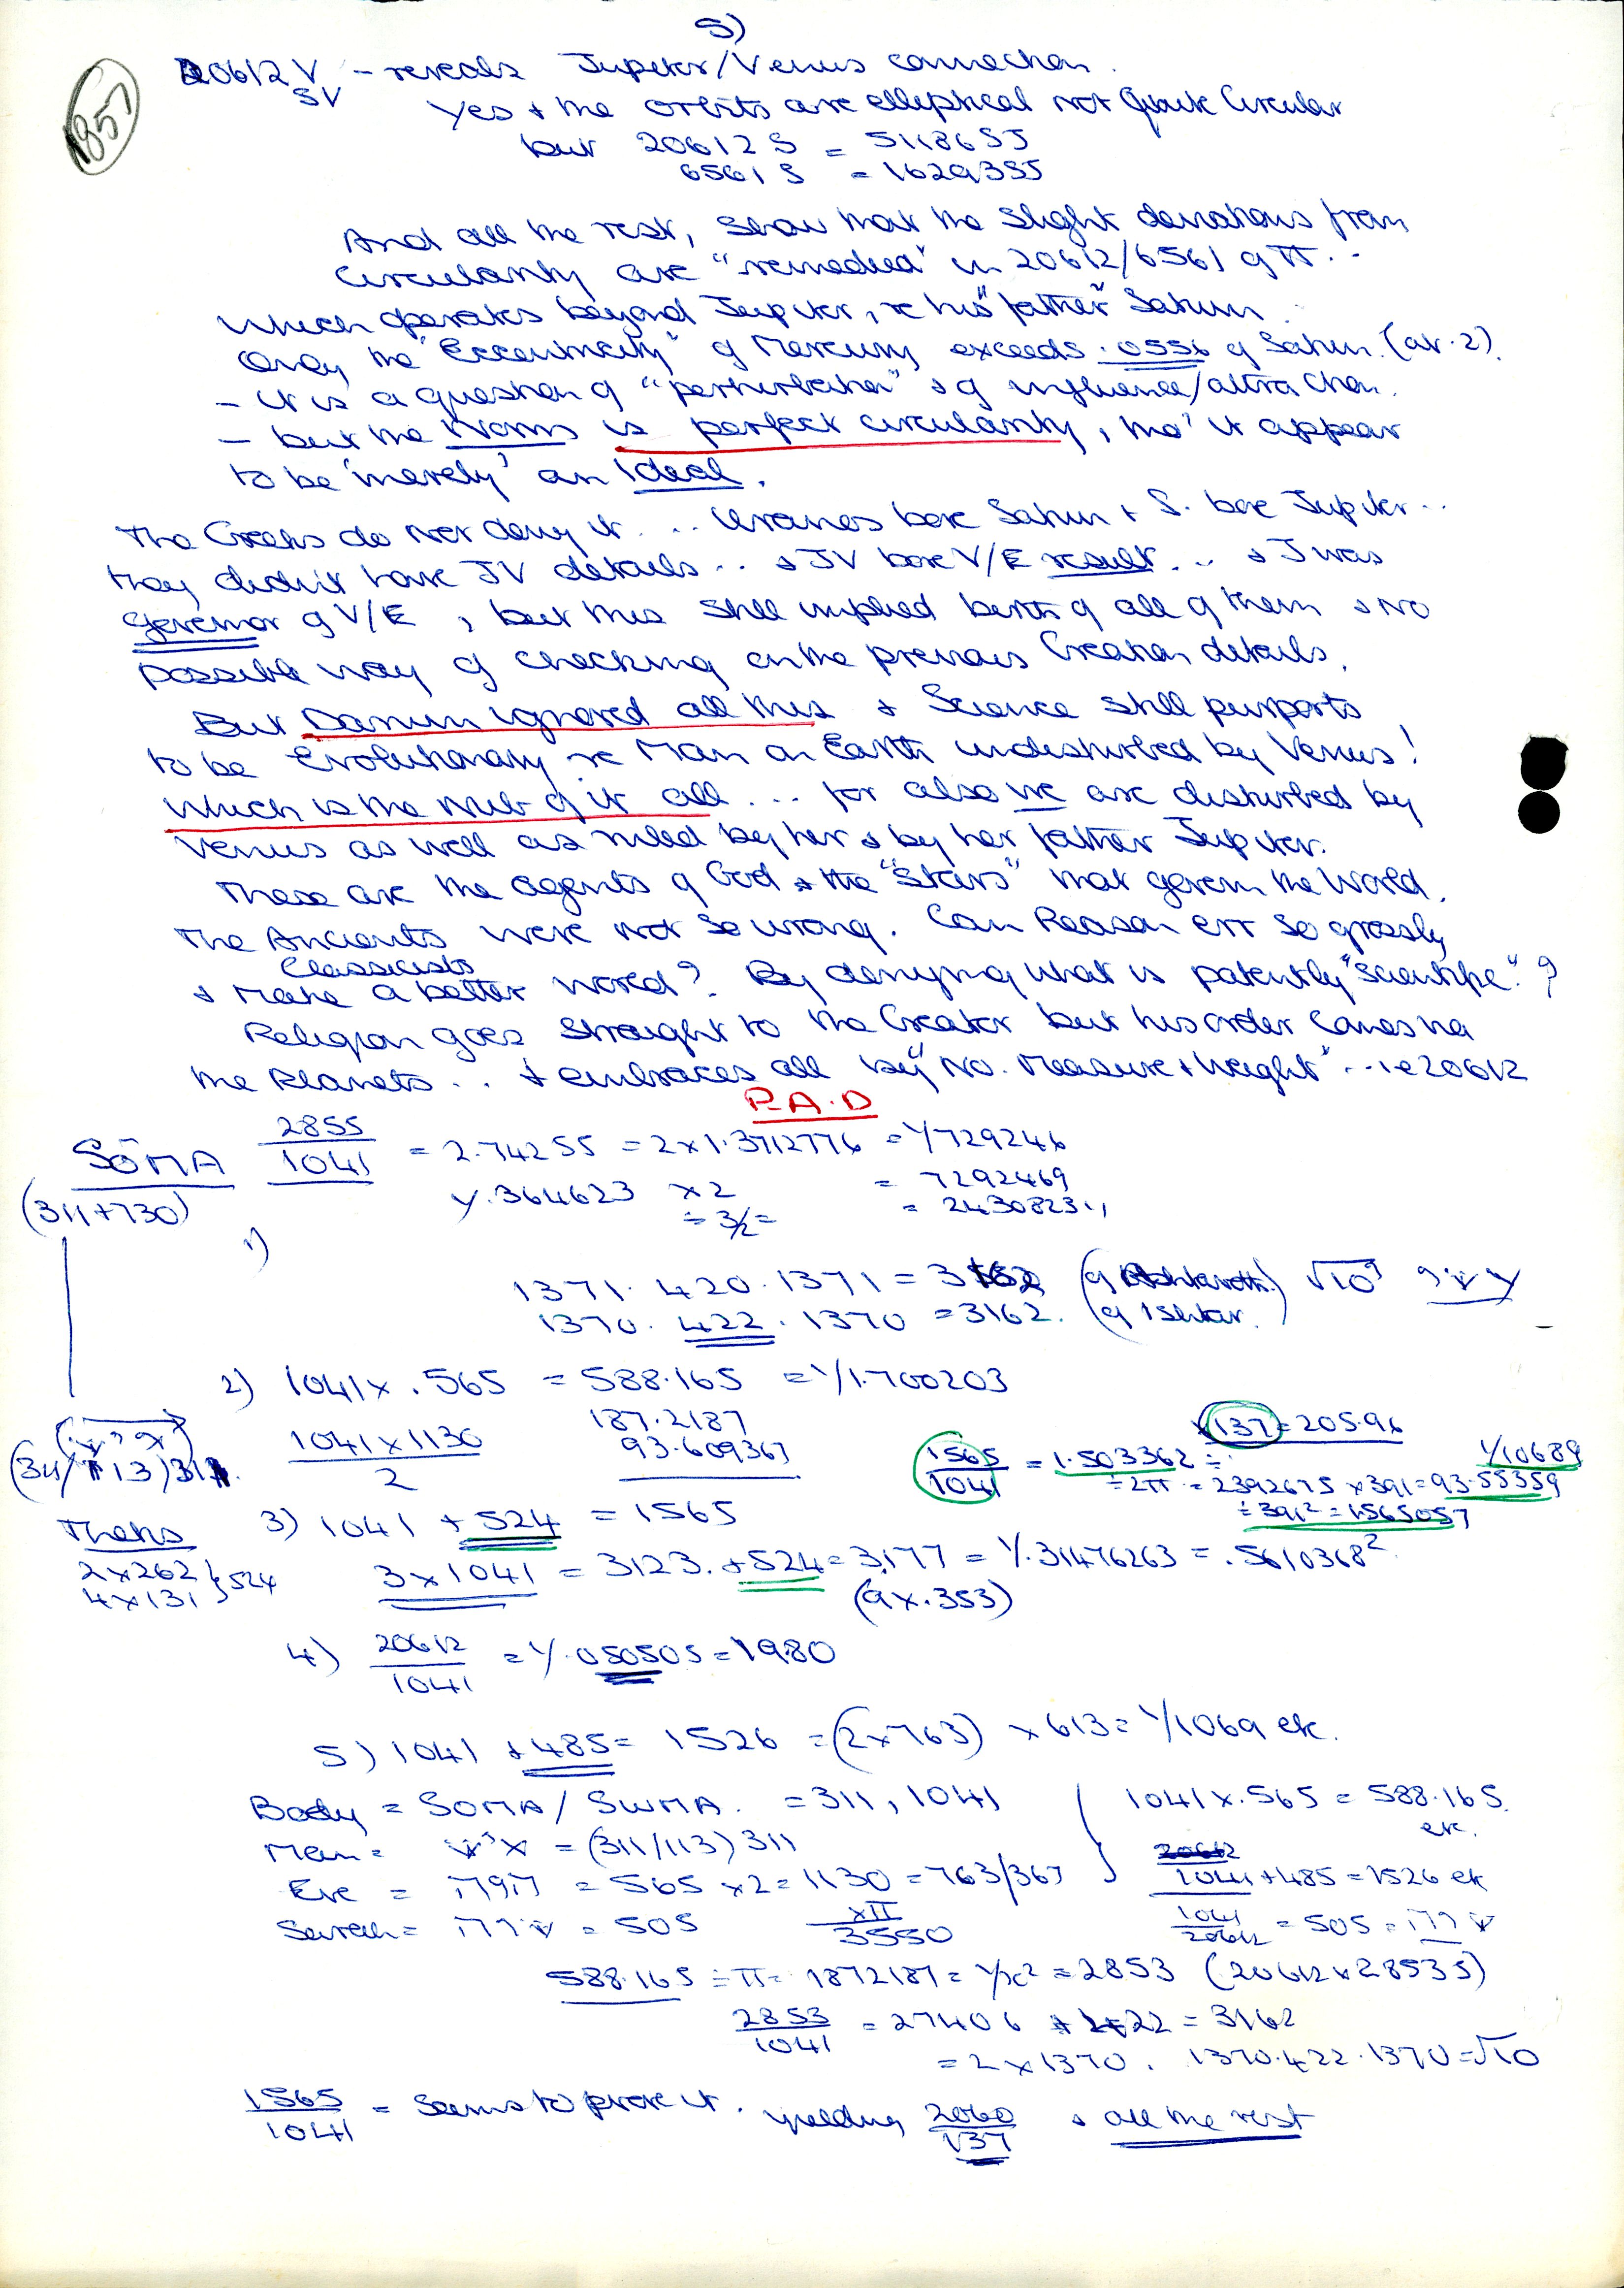 5)
1857
20612 V - reveals Jupiter/Venus connection.
SV Yes & the orbits are elliptical not quite Circular
but 20612 S = 511865J
6561 S = 162935S
And all the rest, show that the slight deviations from
Circularity are "remedied" in 20612/6561 of π..
Which operates beyond Jupiter, re his "father" Saturn.
Only the "Eccentricity" of Mercury exceeds .0556 of Saturn. (av. 2).
- it is a question of "perturbation" & of influence/attraction.
- but the Norm is perfect circularity, tho' it appear
to be 'merely' an Ideal.
The Greeks do not deny it... Uranos bore Saturn & S. bore Jupiter..
they didn't have JV details.. & JV bore V/E result... & J was
governor of V/E, but this still implied birth of all of them & no
possible way of checking on the previous Creation details.
But Darwin ignored all this & Science still purports
to be Evolutionary re Man on Earth undisturbed by Venus!
Which is the nub of it all... for also we are disturbed by
Venus as well as ruled by her & by her father Jupiter.
These are the agents of God & the "Stars" that govern the World.
The Ancients were not so wrong. Can Reason err so grossly
Classicists
& make a better world? By denying what is patently "scientific"?
Religion goes straight to the Creator but his order comes via
the Planets... & embraces all by "No. Measure & Weight"...ie 20612
P.A.D
SŌMA 2855/1041 = 2.74255 = 2 x 1.3712776 = 1/729246
(311+730) 1/.364623 x 2 = 7292469
÷ 3/2 = = 2430823.,
1)
1371. 420. 1371 = 3162 (of Ashtaroth.) √10
1370. 422. 1370 = 3162. (of Ishtar.)
2) 1041 x .565 = 588.165 = 1/1.700203
1041 x 1130 / 2 187.2187
93.609367
1565/1041 = 1.503362 ÷ x137 = 205.96
÷ 2π = 2392675 x 391 = 93.55359 1/10689
÷ 391² = 1565057
(311/113)311.
3) 1041 + 524 = 1565
2x262
4x131 } 524
3 x 1041 = 3123. + 524 = 3177 = 1/.31476263 = .5610368²
(9x.353)
4) 20612/1041 = 1/.050505 = 1980
5) 1041 + 485 = 1526 = (2x763) x 613 = 1/1069 etc.
Body = SOMA / SWMA. = 311, 1041 1041 x .565 = 588.165.
etc.
Man = איש = (311/113) 311
Eve = חוה = 565 x 2 = 1130 = 763/367 1041 + 485 = 1526 etc
Sarah = שרה = 505 xπ/3550 1041/20612 = 505 = שרה
588.165 ÷ π = 1872187 = 1/x² = 2853 (20612 x 28535)
2853/1041 = 27406 + 422 = 3162
= 2 x 1370. 1370.422.1370 = √10
1565/1041 = Seems to prove it. yielding 2060/137 & all the rest